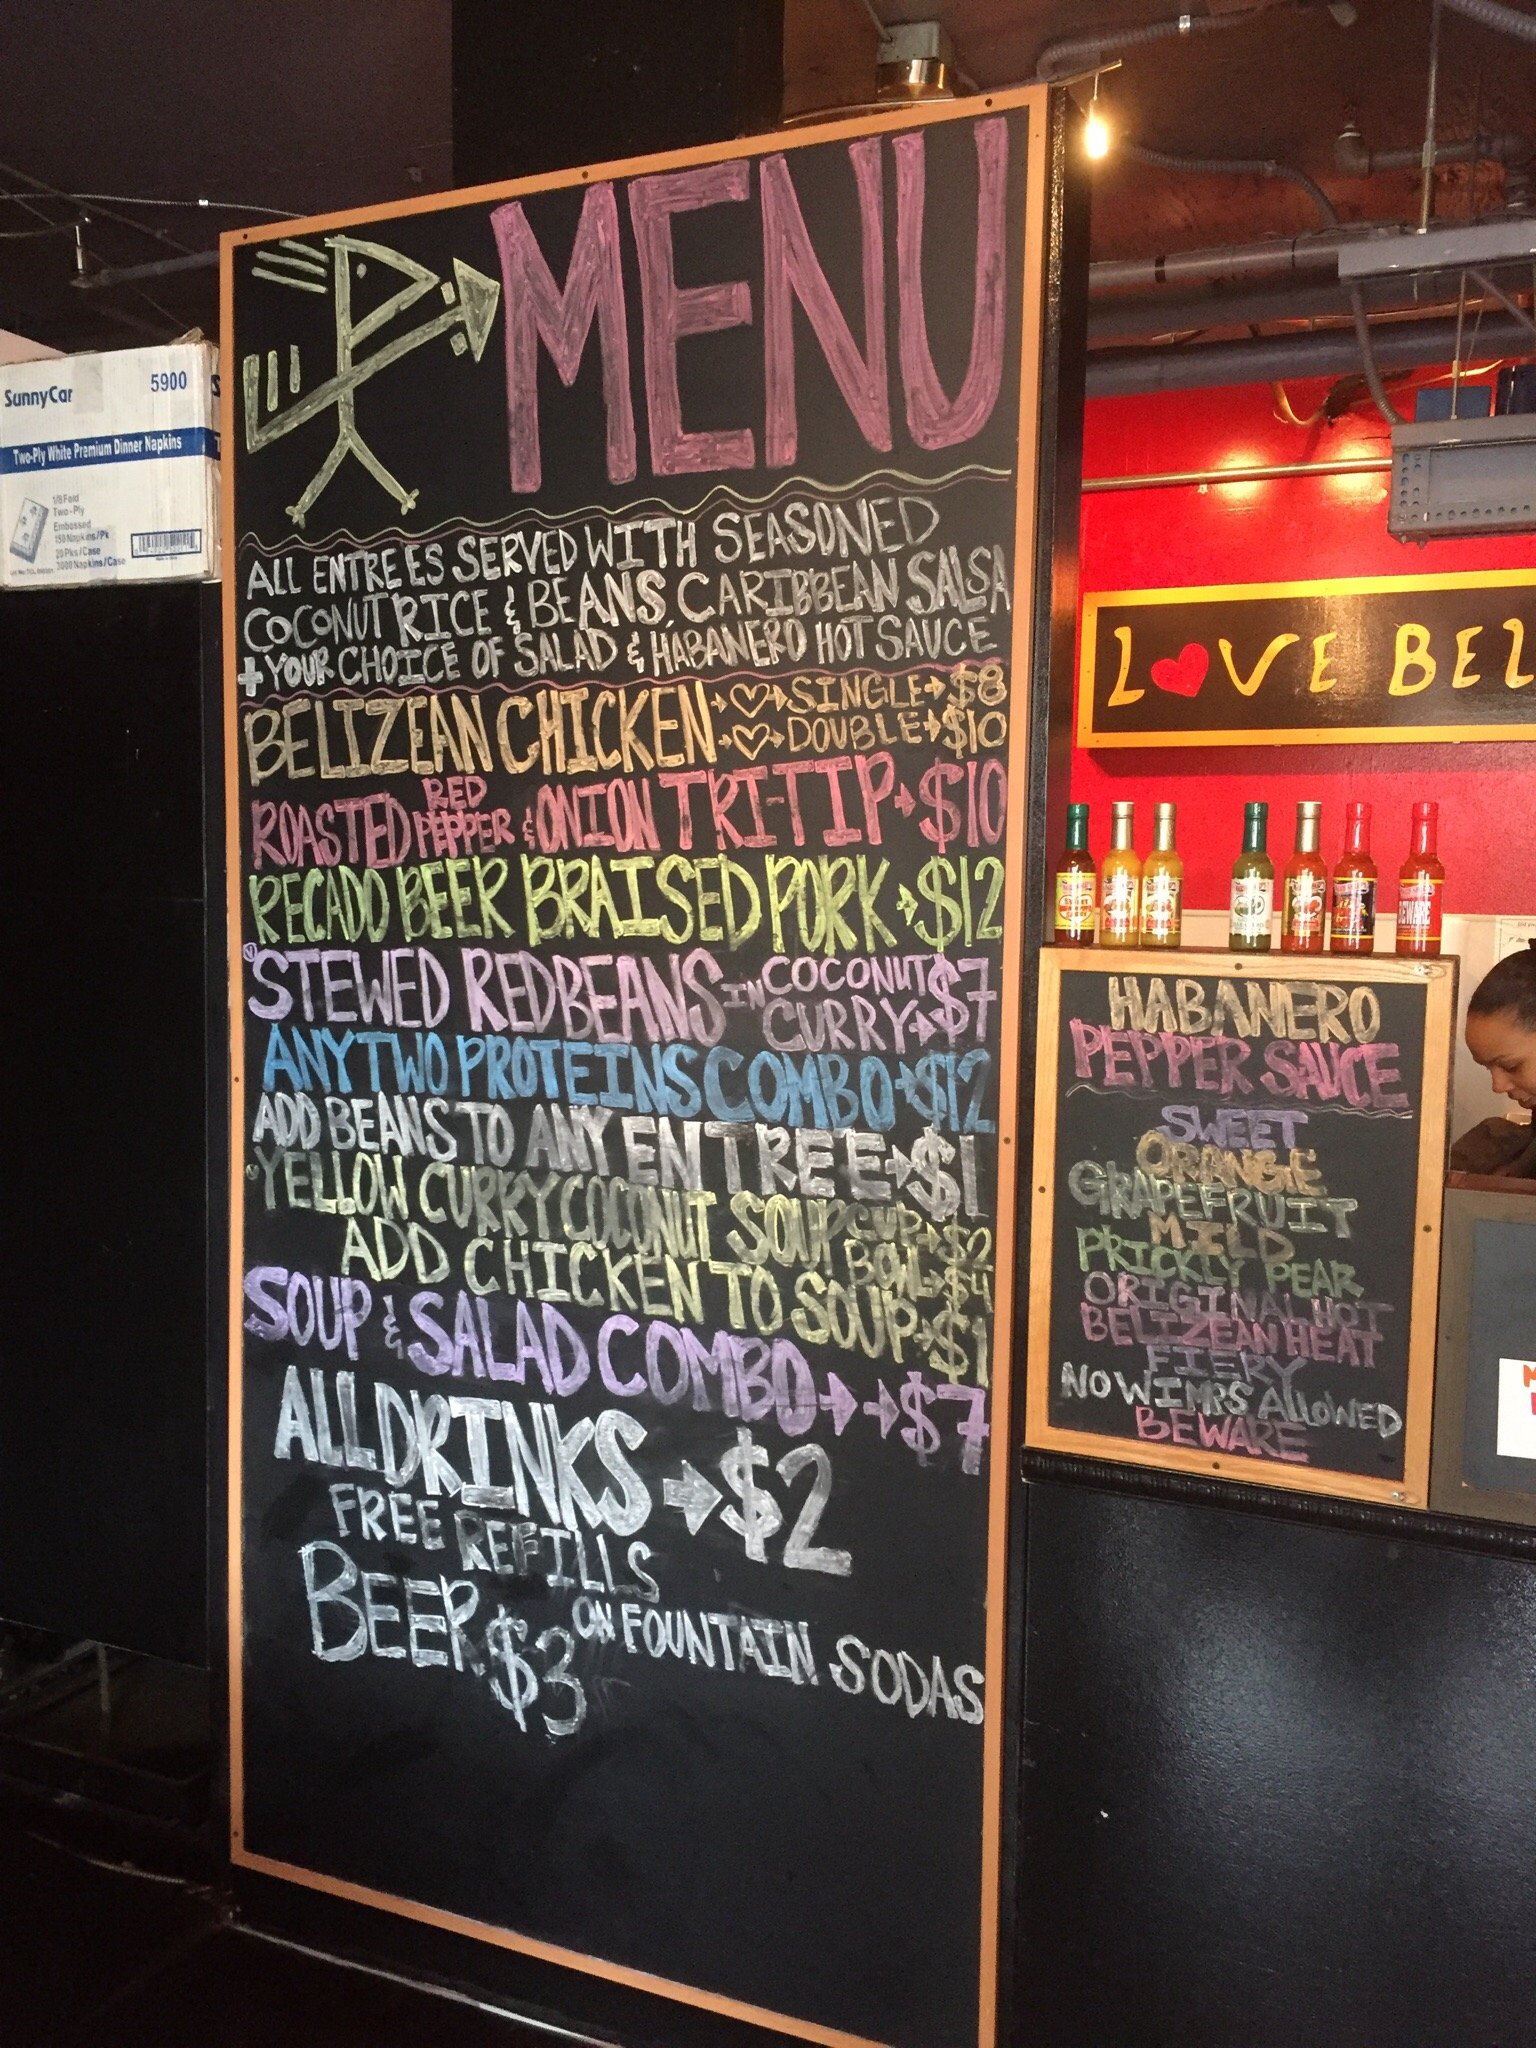 MENU
ALL ENTREES SERVED WITH SEASONED
COCONUT RICE & BEANS, CARIBBEAN SALSA
+ YOUR CHOICE OF SALAD & HABANERO HOT SAUCE
BELIZEAN CHICKEN → ♡ → SINGLE → $8
→ ♡ → DOUBLE → $10
ROASTED RED PEPPER & ONION TRI-TIP → $10
RECADO BEER BRAISED PORK → $12
V STEWED RED BEANS IN COCONUT CURRY → $7
ANY TWO PROTEINS COMBO → $12
ADD BEANS TO ANY ENTREE → $1
V YELLOW CURRY COCONUT SOUP CUP → $2
BOWL → $4
ADD CHICKEN TO SOUP → $1
SOUP & SALAD COMBO → → $7
ALL DRINKS → $2
FREE REFILLS
ON FOUNTAIN SODAS
BEER $3
SunnyCar 5900
Two-Ply White Premium Dinner Napkins
1/8 Fold
Two-Ply
Embossed
150 Napkins/Pk
20 Pks/Case
3000 Napkins/Case
LOVE BEL
HABANERO
PEPPER SAUCE
SWEET
ORANGE
GRAPEFRUIT
MILD
PRICKLY PEAR
ORIGINAL HOT
BELIZEAN HEAT
FIERY
NO WIMPS ALLOWED
BEWARE
BEWARE